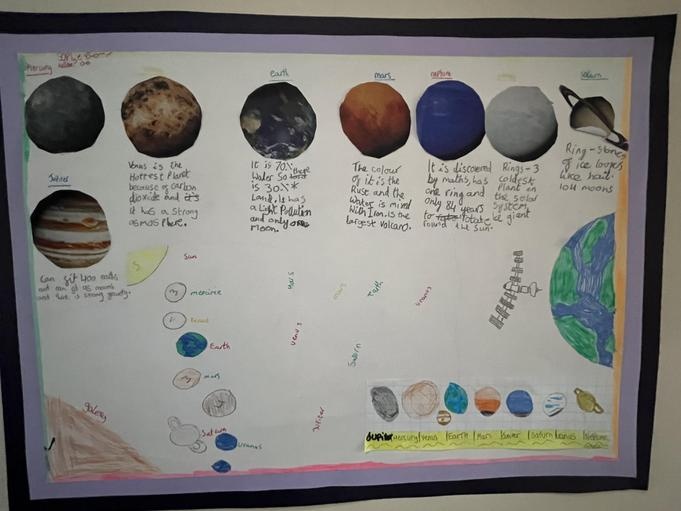 mercury
earth
mars
neptune
saturn
Venus is the
Hottest Plant
because of carbon
dioxide and it's
it has a strong
asmos Phere.
It is 70% there
Water So
is 30%*
Land. It has
a Light Pollution
and only one
moon.
The colour
of it is the
Rust and the
Water is mixed
With Iron. Is the
largest volcano.
It is discovered
by maths, has
one ring and
only 84 years
to rotate
round the sun.
Rings - 3
coldest
Plant on
the solar
System,
be giant
Ring - stones
of ice loops
like hail.
104 moons
Jupiter
Can fit 400 earths
and
and has is strong gravity.
Sun
mercure
Venus
Earth
mars
Saturn
Uranus
galaxy
Mars
venus
mars
Earth
Saturn
Uranus
Jupiter
Jupiter mercury Venus Earth Mars Saturn uranus Neptune